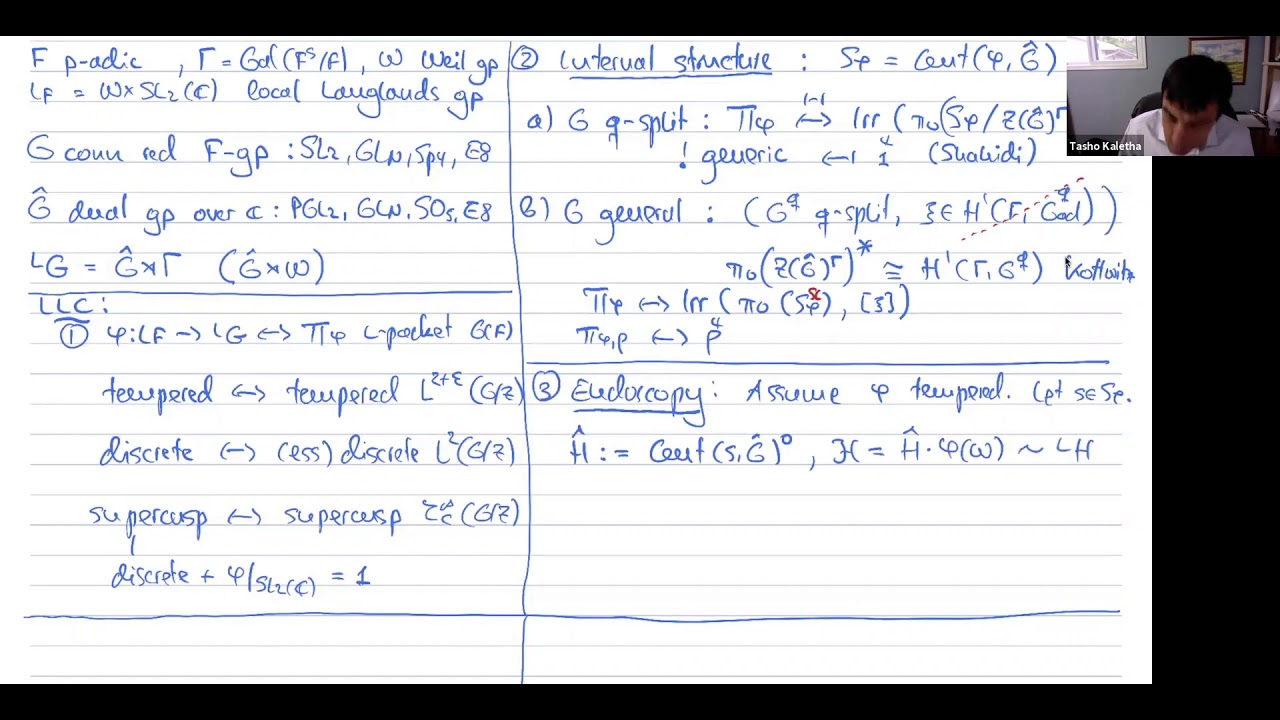 F p-adic , Γ = Gal(F^s/F), W Weil gp
L_F = W × SL_2(ℂ) local Langlands gp
G conn red F-gp : SL_2, GL_N, Sp_4, E_8
Ĝ dual gp over ℂ : PGL_2, GL_N, SO_5, E_8
^LG = Ĝ ⋊ Γ (Ĝ ⋊ W)
LLC:
① φ: L_F → ^LG ↔ Π_φ L-packet G(F)
tempered ↔ tempered L^{2+ε}(G/Z)
discrete ↔ (ess) discrete L^2(G/Z)
supercusp ↔ supercusp C_c^∞(G/Z)
discrete + φ|_{SL_2(ℂ)} = 1
② Internal structure : S_φ = Cent(φ, Ĝ)
a) G q-split : Π_φ ↔^{1-1} Irr(π_0(S_φ / Z(Ĝ)^Γ
! generic ↔ 1 (Shahidi)
b) G general : (G^q q-split, ξ ∈ H^1(Γ, G^q_ad))
π_0(Z(Ĝ)^Γ)^* ≅ H^1(Γ, G^q) Kottwitz
Π_φ ↔ Irr(π_0(S_φ^sc), [ξ])
π_{φ,ρ} ↔ ρ
③ Endoscopy : Assume φ tempered. Let s ∈ S_φ.
Ĥ := Cent(s, Ĝ)^0 , ℋ = Ĥ · φ(W) ~ ^LH
Tasho Kaletha